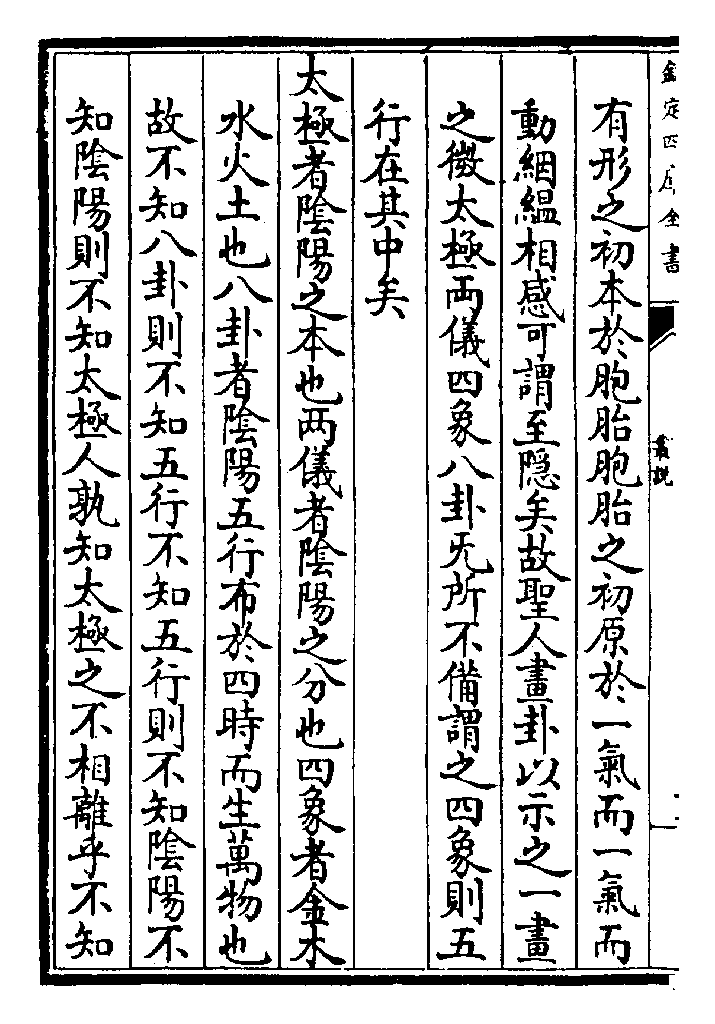 欽定四庫全書
叢說
有形之初本於胞胎胞胎之初原於一氣而一氣而
動絪緼相感可謂至隱矣故聖人畫卦以示之一畫
之微太極両儀四象八卦旡所不備謂之四象則五
行在其中矣
太極者陰陽之本也两儀者陰陽之分也四象者金木
水火土也八卦者陰陽五行布於四時而生萬物也
故不知八卦則不知五行不知五行則不知陰陽不
知陰陽則不知太極人孰知太極之不相離乎不知